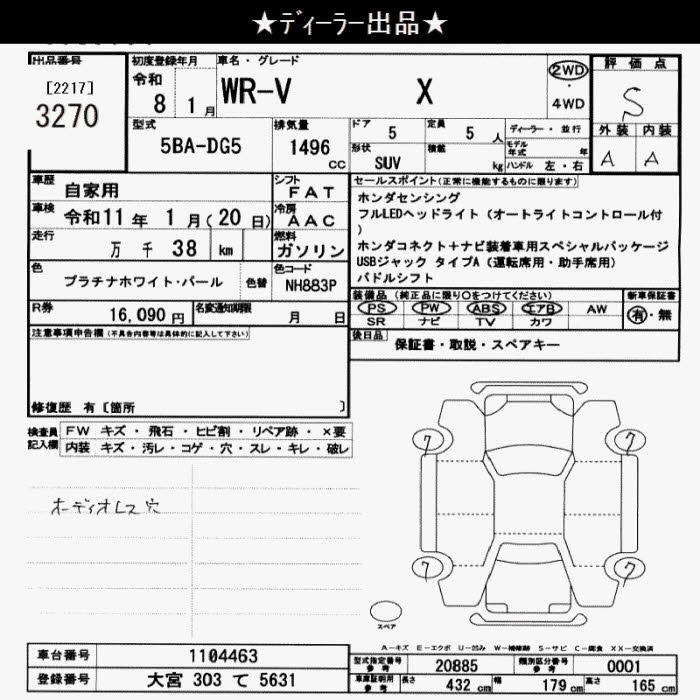 ★ディーラー出品★
出品番号
[2217]
3270
初度登録年月
令和 8 1 月
車名・グレード
WR-V X
2WD
・
4WD
評価点
S
外装 内装
A A
型式
5BA-DG5
排気量
1496 cc
ドア 5
定員 5 人
形状 SUV
積載 kg
ディーラー・並行
モデル年式 年
ハンドル 左・右
車歴 自家用
シフト FAT
車検 令和11年 1月(20日)
冷房 AAC
走行 万 千 38 km
燃料 ガソリン
色 プラチナホワイト・パール
色替
色コード NH883P
R券 16,090円
名変通知期限 月 日
セールスポイント(正常に機能するものに限ります)
ホンダセンシング
フルLEDヘッドライト(オートライトコントロール付
)
ホンダコネクト+ナビ装着車用スペシャルパッケージ
USBジャック タイプA(運転席用・助手席用)
パドルシフト
装備品(純正品に限り○をつけてください)
PS PW ABS エアB AW
SR ナビ TV カワ
新車保証書
有・無
後日品
保証書・取説・スペアキー
注意事項申告欄(不具合内容等は具体的に記入して下さい)
修復歴 有〔箇所 〕
検査員記入欄
FW キズ・飛石・ヒビ割・リペア跡・×要
内装 キズ・汚レ・コゲ・穴・スレ・キレ・破レ
オーディオレス穴
7 7
7 7
スペア
A-キズ E-エクボ U-凹み W-補修跡 S-サビ C-腐食 XX-交換済
車台番号 1104463
登録番号 大宮 303 て 5631
型式指定番号 参考 20885
類別区分番号 参考 0001
車庫証明用 参考 長さ 432 cm 幅 179 cm 高さ 165 cm